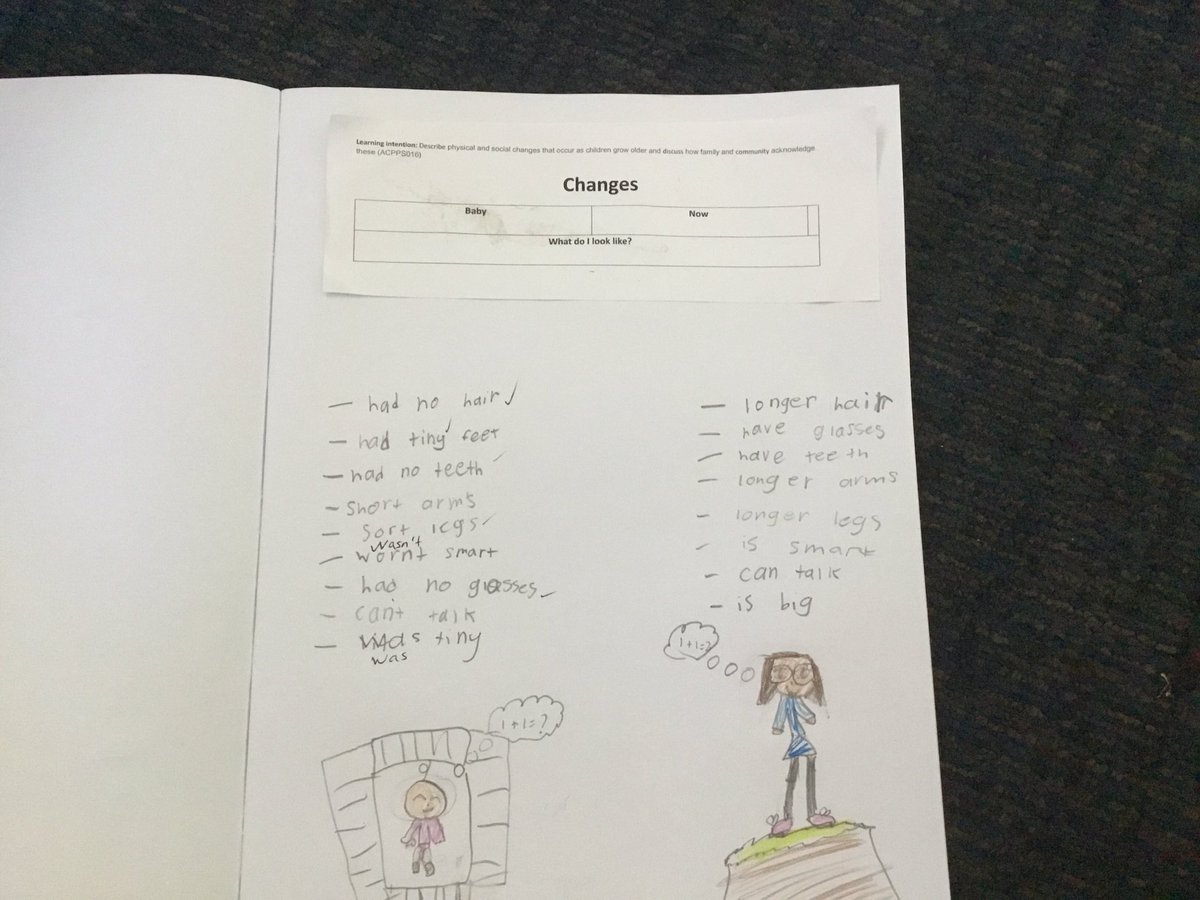 Learning intention: Describe physical and social changes that occur as children grow older and discuss how family and community acknowledge
these (ACPPS016)
Changes
Baby
Now
What do I look like?
— had no hair ✓
— had tiny feet
— had no teeth
— Short arms
— Sort legs
Wasn't
— wornt smart
— had no glasses
— can't talk
— was tiny
was
— longer hair
— have glasses
— have teeth
— longer arms
— longer legs
— is smart
— can talk
— is big
1+1=?
1+1=?